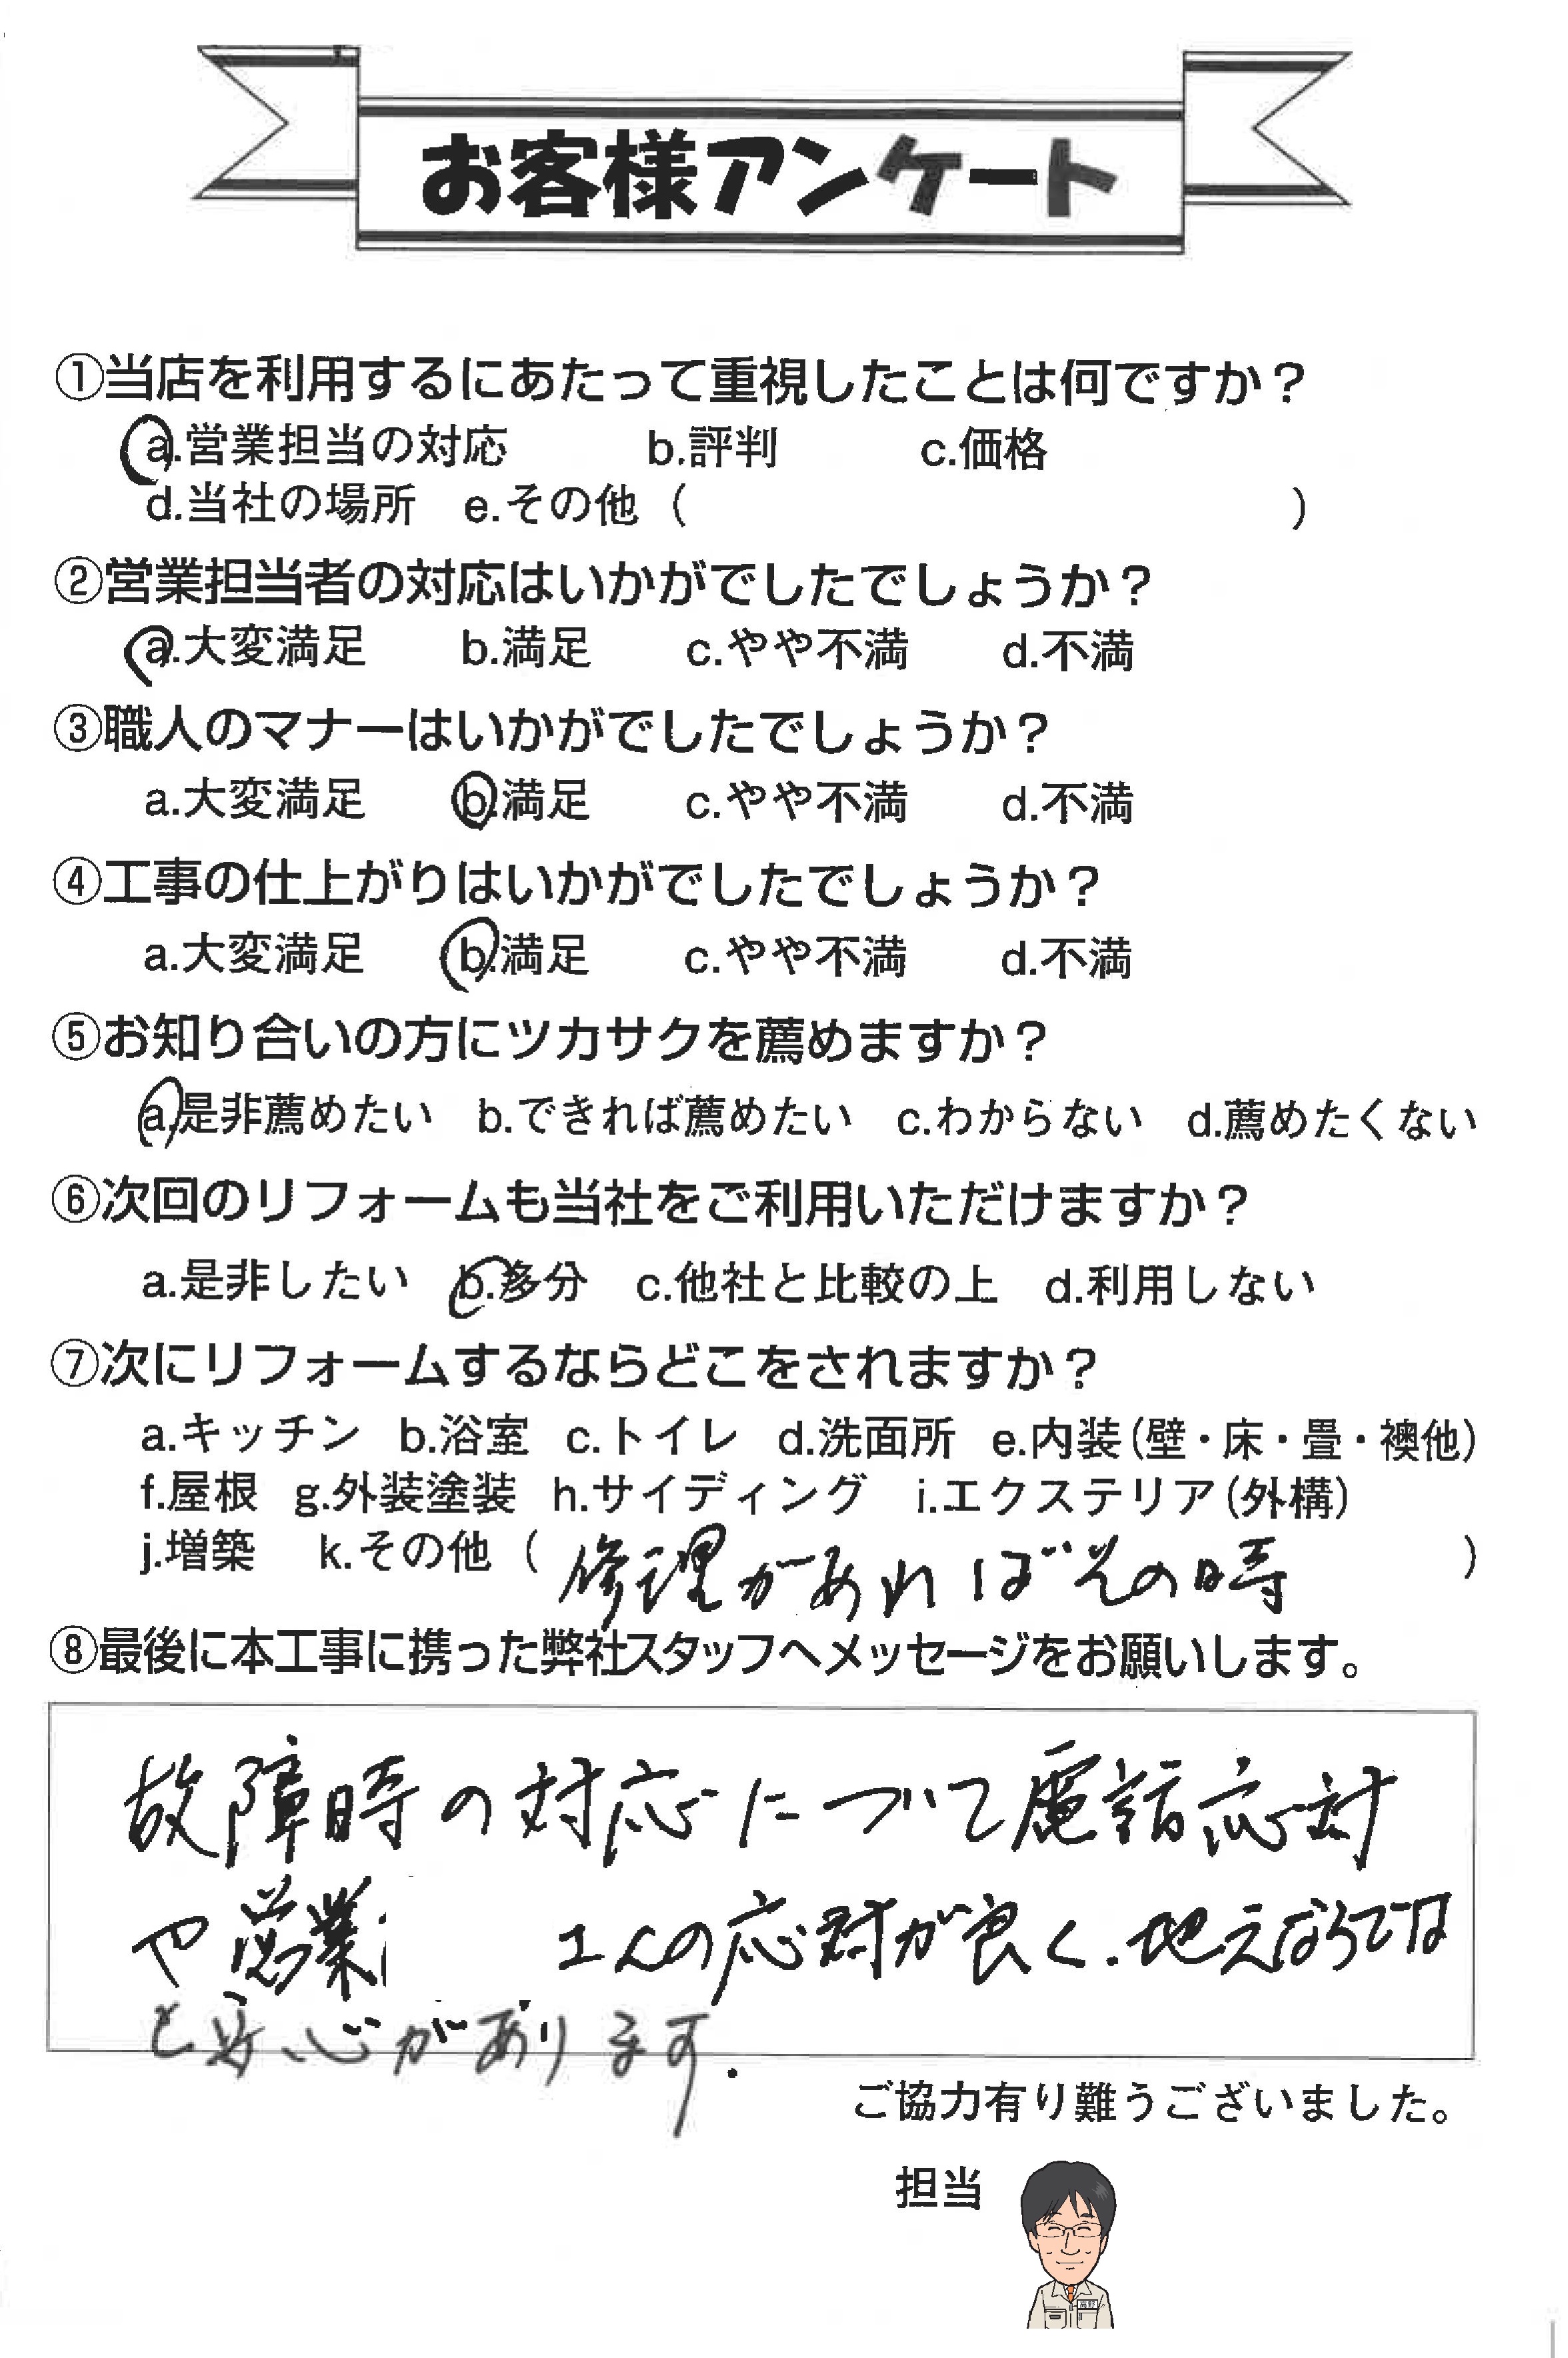 お客様アンケート
①当店を利用するにあたって重視したことは何ですか？
a.営業担当の対応 b.評判 c.価格
d.当社の場所 e.その他（ ）
②営業担当者の対応はいかがでしたでしょうか？
a.大変満足 b.満足 c.やや不満 d.不満
③職人のマナーはいかがでしたでしょうか？
a.大変満足 b.満足 c.やや不満 d.不満
④工事の仕上がりはいかがでしたでしょうか？
a.大変満足 b.満足 c.やや不満 d.不満
⑤お知り合いの方にツカサクを薦めますか？
a.是非薦めたい b.できれば薦めたい c.わからない d.薦めたくない
⑥次回のリフォームも当社をご利用いただけますか？
a.是非したい b.多分 c.他社と比較の上 d.利用しない
⑦次にリフォームするならどこをされますか？
a.キッチン b.浴室 c.トイレ d.洗面所 e.内装(壁・床・畳・襖他)
f.屋根 g.外装塗装 h.サイディング i.エクステリア(外構)
j.増築 k.その他（修理があればその時）
⑧最後に本工事に携った弊社スタッフへメッセージをお願いします。
故障時の対応について電話応対
や営業 さんの応対が良く.地元ならでは
と安心があります.
ご協力有り難うございました。
担当